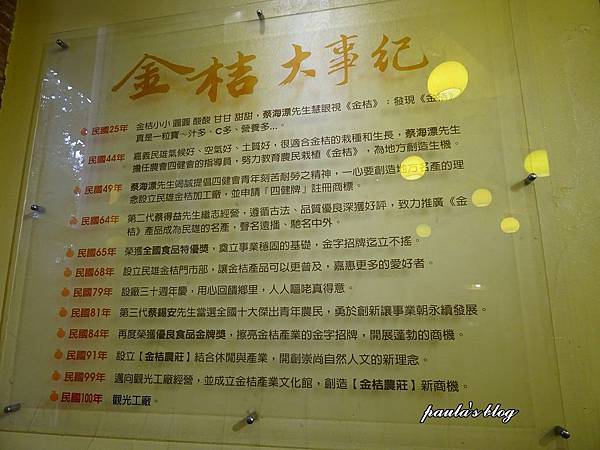 金桔大事紀
民國25年 金桔小小 圓圓 酸酸 甘甘 甜甜，蔡海漂先生慧眼視《金桔》：發現《金
真是一粒寶~汁多、C多、營養多...。
民國44年 嘉義民雄氣候好、空氣好、土質好，很適合金桔的栽種和生長，蔡海漂先生
擔任農會四健會的指導員，努力教育農民栽植《金桔》，為地方創造生機。
民國49年 蔡海漂先生竭誠提倡四健會青年刻苦耐勞之精神，一心要創造地方名產的理
念設立民雄金桔加工廠，並申請「四健牌」註冊商標。
民國64年 第二代蔡得益先生繼志經營，遵循古法、品質優良深獲好評，致力推廣《金
桔》產品成為民雄的名產，聲名遠播、馳名中外。
民國65年 榮獲全國食品特優獎，奠立事業穩固的基礎，金字招牌迄立不搖。
民國68年 設立民雄金桔門市部，讓金桔產品可以更普及，嘉惠更多的愛好者。
民國79年 設廠三十週年慶，用心回饋鄉里，人人謳咾真得意。
民國81年 第三代蔡錫安先生當選全國十大傑出青年農民，勇於創新讓事業朝永續發展。
民國84年 再度榮獲優良食品金牌獎，擦亮金桔產業的金字招牌，開展蓬勃的商機。
民國91年 設立【金桔農莊】結合休閒與產業，開創崇尚自然人文的新理念。
民國99年 邁向觀光工廠經營，並成立金桔產業文化館，創造【金桔農莊】新商機。
民國100年 觀光工廠。
paula's blog